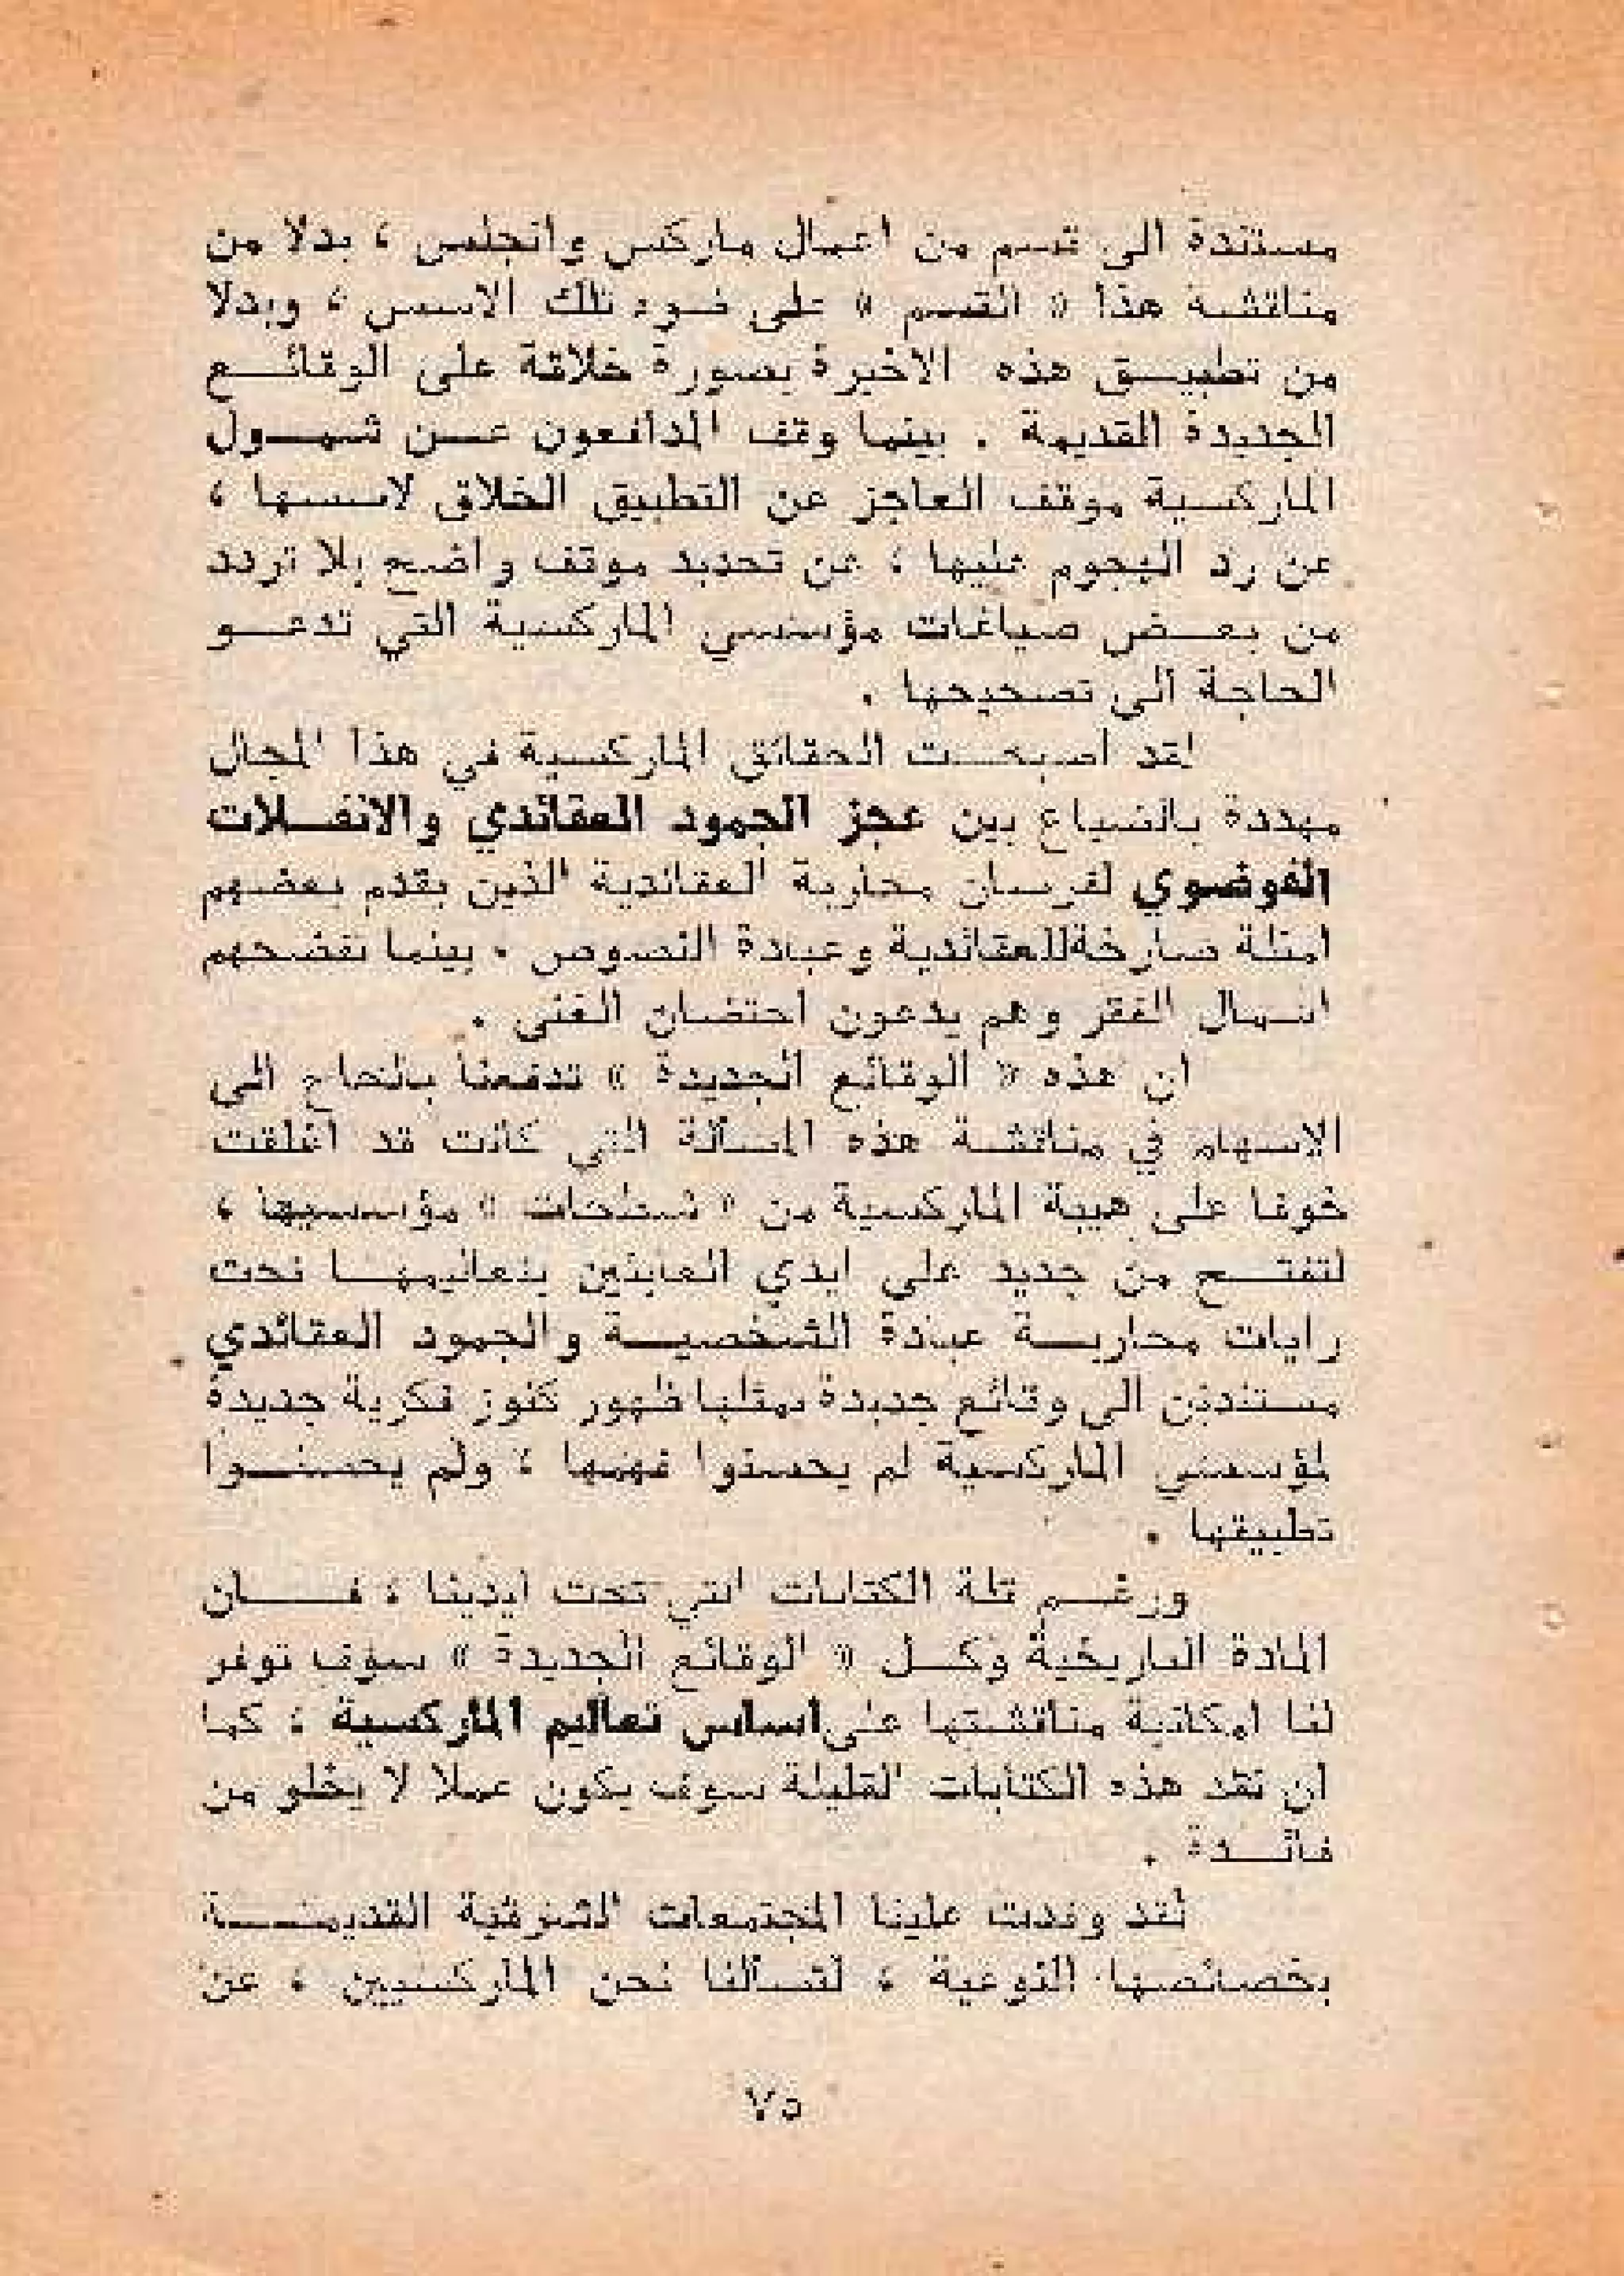 مستندة الى قسم من اعمال ماركس وانجلس ، بدلا من
مناقشة هذا « القسم » على ضوء تلك الاسس ، وبدلا
من تطبيــق هذه الاخيرة بصورة خلاقة على الوقائــع
الجديدة القديمة . بينما وقف المدافعون عــن شمــول
الماركسية موقف العاجز عن التطبيق الخلاق لاسسها ،
عن رد الهجوم عليها ، عن تحديد موقف واضح بلا تردد
من بعــض صياغات مؤسسي الماركسية التي تدعــو
الحاجة الى تصحيحها .
لقد اصبحــت الحقائق الماركسية في هذا المجال
مهددة بالضياع بين عجز الجمود العقائدي والانفــلات
الفوضوي لفرسان محاربة العقائدية الذين يقدم بعضهم
امثلة صارخةللعقائدية وعبادة النصوص . بينما تفضحهم
اسمال الفقر وهم يدعون احتضان الغنى .
ان هذه « الوقائع الجديدة » تدفعنا بالحاح الى
الاسهام في مناقشة هذه المسألة التي كانت قد اغلقت
خوفا على هيبة الماركسية من « شطحات » مؤسسيها ،
لتفتــح من جديد على ايدي العابثين بتعاليمهــا تحت
رايات محاربــة عبادة الشخصيــة والجمود العقائدي
مستندين الى وقائع جديدة يمثلها ظهور كنوز فكرية جديدة
لمؤسسي الماركسية لم يحسنوا فهمها ، ولم يحسنــوا
تطبيقها .
ورغــم قلة الكتابات التي تحت ايدينا ، فــان
المادة التاريخية وكــل « الوقائع الجديدة » سوف توفر
لنا امكانية مناقشتها على اساس تعاليم الماركسية ، كما
ان نقد هذه الكتابات القليلة سوف يكون عملا لا يخلو من
فائــدة .
لقد وفدت علينا المجتمعات الشرقية القديمــة
بخصائصها النوعية ، لتسألنا نحن الماركسيين ، عن
٧٥